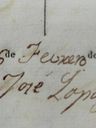 de Febrero de
José Lopez